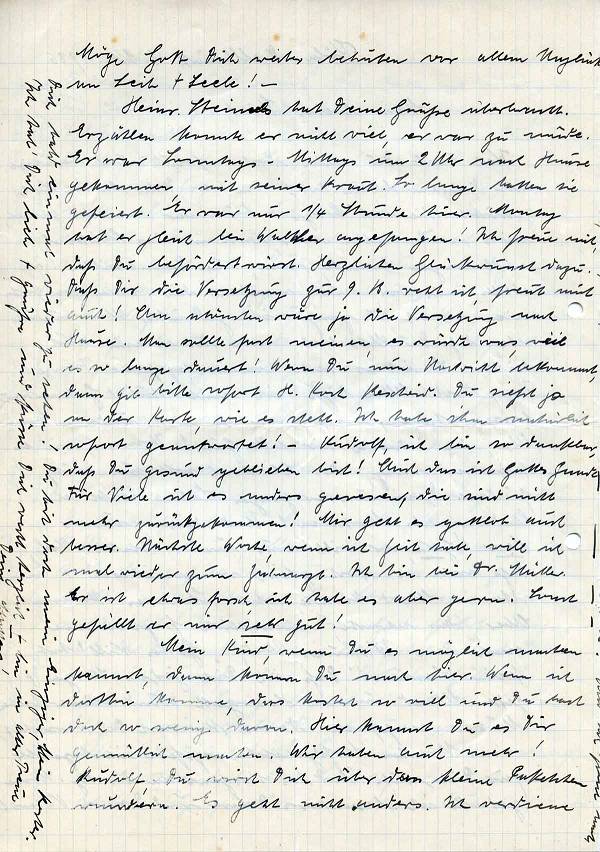 Möge Gott Dich weiter behüten vor allem Unglück
an Leib + Seele! –
Heinr. hat Deine Grüße übermittelt.
Erzählen konnte er nicht viel, er war zu müde.
Er war Sonntags - Mittags um 2 Uhr nach Hause
gekommen mit seiner Braut. So lange hatten sie
gefeiert. Er war nur 1/4 Stunde hier. Montag
hat er gleich bei Walther angefangen! Ich freue mich,
daß Du befördert wirst. Herzlichen Glückwunsch dazu.
Daß Dir die Versetzung zur 9. B. recht ist, freut mich
auch! Am schönsten wäre ja die Versetzung nach
Hause. Man sollte fast meinen, es würde was, weil
es so lange dauert! Wenn Du nun Nachricht bekommst,
dann gib bitte sofort H. Koch Bescheid. Du siehst ja
an der Karte, wie es steht. Ich habe ihm natürlich
sofort geantwortet! – Rudolf, ich bin so dankbar,
daß Du gesund geblieben bist! Auch das ist Gottes Gnade
Für Viele ist es anders gewesen, die sind nicht
mehr zurückgekommen! Mir geht es gottlob auch
besser. Nächste Woche, wenn ich Zeit habe, will ich
mal wieder zum Zahnarzt. Ich bin bei Dr. Müller.
Er ist etwas forsch, ich habe es aber gern. Sonst
gefällt er mir sehr gut!
Mein Kind, wenn Du es möglich machen
kannst, dann komm Du nach hier. Wenn ich
dorthin komme, das kostet so viel und Du hast
doch so wenig davon. Hier kannst Du es Dir
gemütlich machen. Wir haben auch mehr!
Rudolf, Du wirst Dich über das kleine Paketchen
wundern. Es geht nicht anders. Ich verdiene
Dich bald einmal wieder zu sehen! Du bist doch mein einziger, bester.
Ich hab' Dich lieb + grüße und küsse Dich recht herzlich + bin in alter Treue
Deine